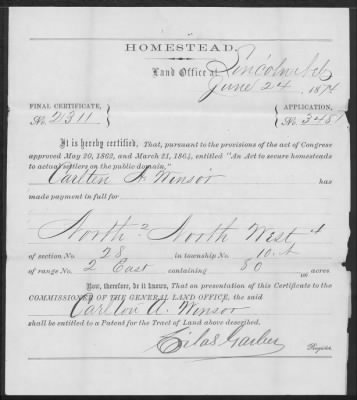 HOMESTEAD.
Land Office at Lincoln Neb
June 24, 1874
FINAL CERTIFICATE,
No. 2311
APPLICATION,
No. 3451
It is hereby certified, That, pursuant to the provisions of the act of Congress
approved May 20, 1862, and March 21, 1864, entitled "An Act to secure homesteads
to actual settlers on the public domain,"
Carlton A. Winsor has
made payment in full for
North 2 North West 4
of section No. 28 in township No. 10 N
of range No. 2 East containing 80 acres
Now, therefore, be it known, That on presentation of this Certificate to the
COMMISSIONER OF THE GENERAL LAND OFFICE, the said
Carlton A. Winsor
shall be entitled to a Patent for the Tract of Land above described.
Silas Garber
Register.